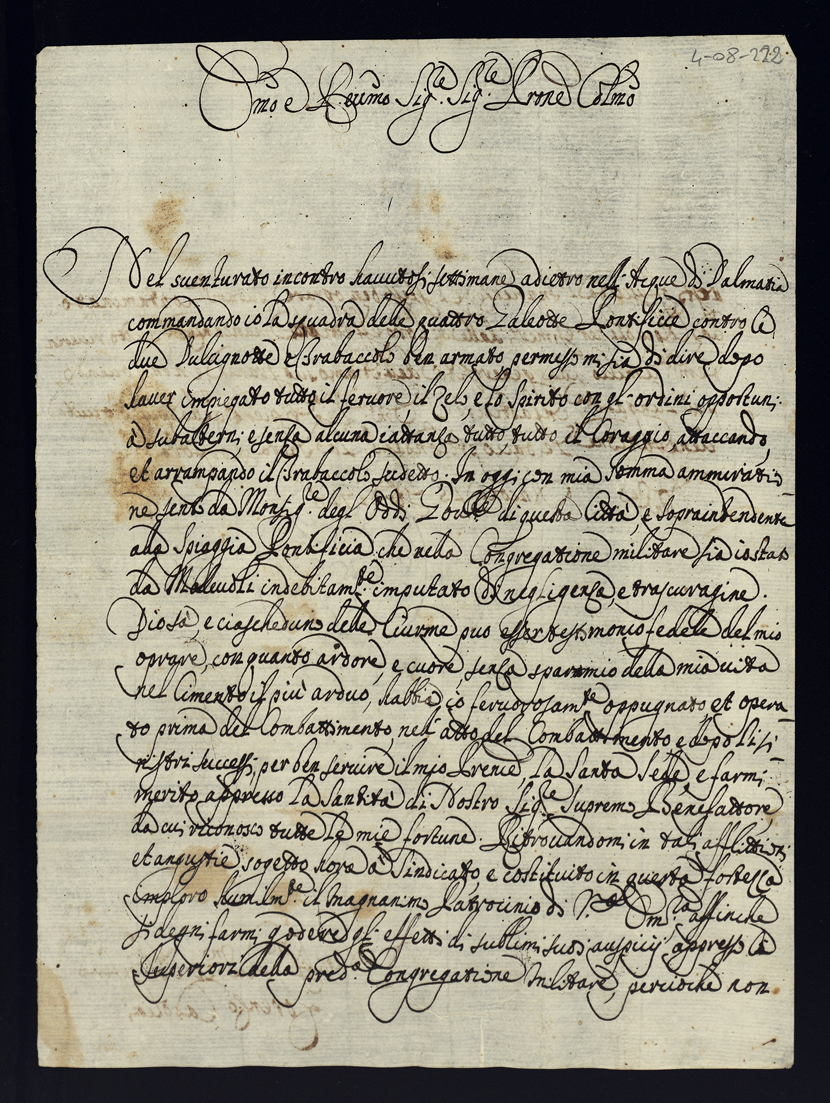 4-08-222
Em̃o e Reumo Sigre Sigre Prone Colmo
Nel suenturato incontro hauutosi settimane adietro nell'Acque di Dalmatia
commandando io la squadra delle quattro Galeotte Pontificie contro le
due Dulcignotte e Trabaccolo ben armato permesso mi sia di dire dopo
hauer impiegato tutto il feruore, il Zelo, e lo Spirito con gl'ordini opportuni
à subalterni, e senza alcuna iattanza tutto, tutto il Coraggio, attaccando,
et arrampando il Trabaccolo sudetto. In oggi con mia somma ammiratio¯
ne sento da Monsigre degl'Oddi Gou.re di questa Città, e sopraindendente
alla Spiaggia Pontificia che nella Congregatione militare sia io stato
da Maleuoli indebitamte imputato di negligenza, e trascuragine.
Dio sà, e ciascheduno delle Ciurme può esser testimonio fedele del mio
oprare, con quanto ardore, e cuore, senza sparamio della mia uita
nel Cimento il più arduo, habbia io feruorosamte oppugnato et opera¯
to prima del Combattimento, nell'atto del Combattimento e dopo li si¯
nistri successi, per ben seruire il mio Prencipe, la Santa Sede, e farmi
merito appresso la Santità di Nostro Sigre supremo Benefattore,
da cui riconosco tutte le mie fortune. Ritrouandomi in tali afflittioni
et angustie, sogetto hora à Sindicato, e costituito in questa fortezza
imploro humilmte il magnanimo Patrocinio di V.ra Emza affinche
si degni farmi godere gl'effetti di sublimi suoi auspicij appresso li
Superiori della preda Congregatione Militare, percioche non